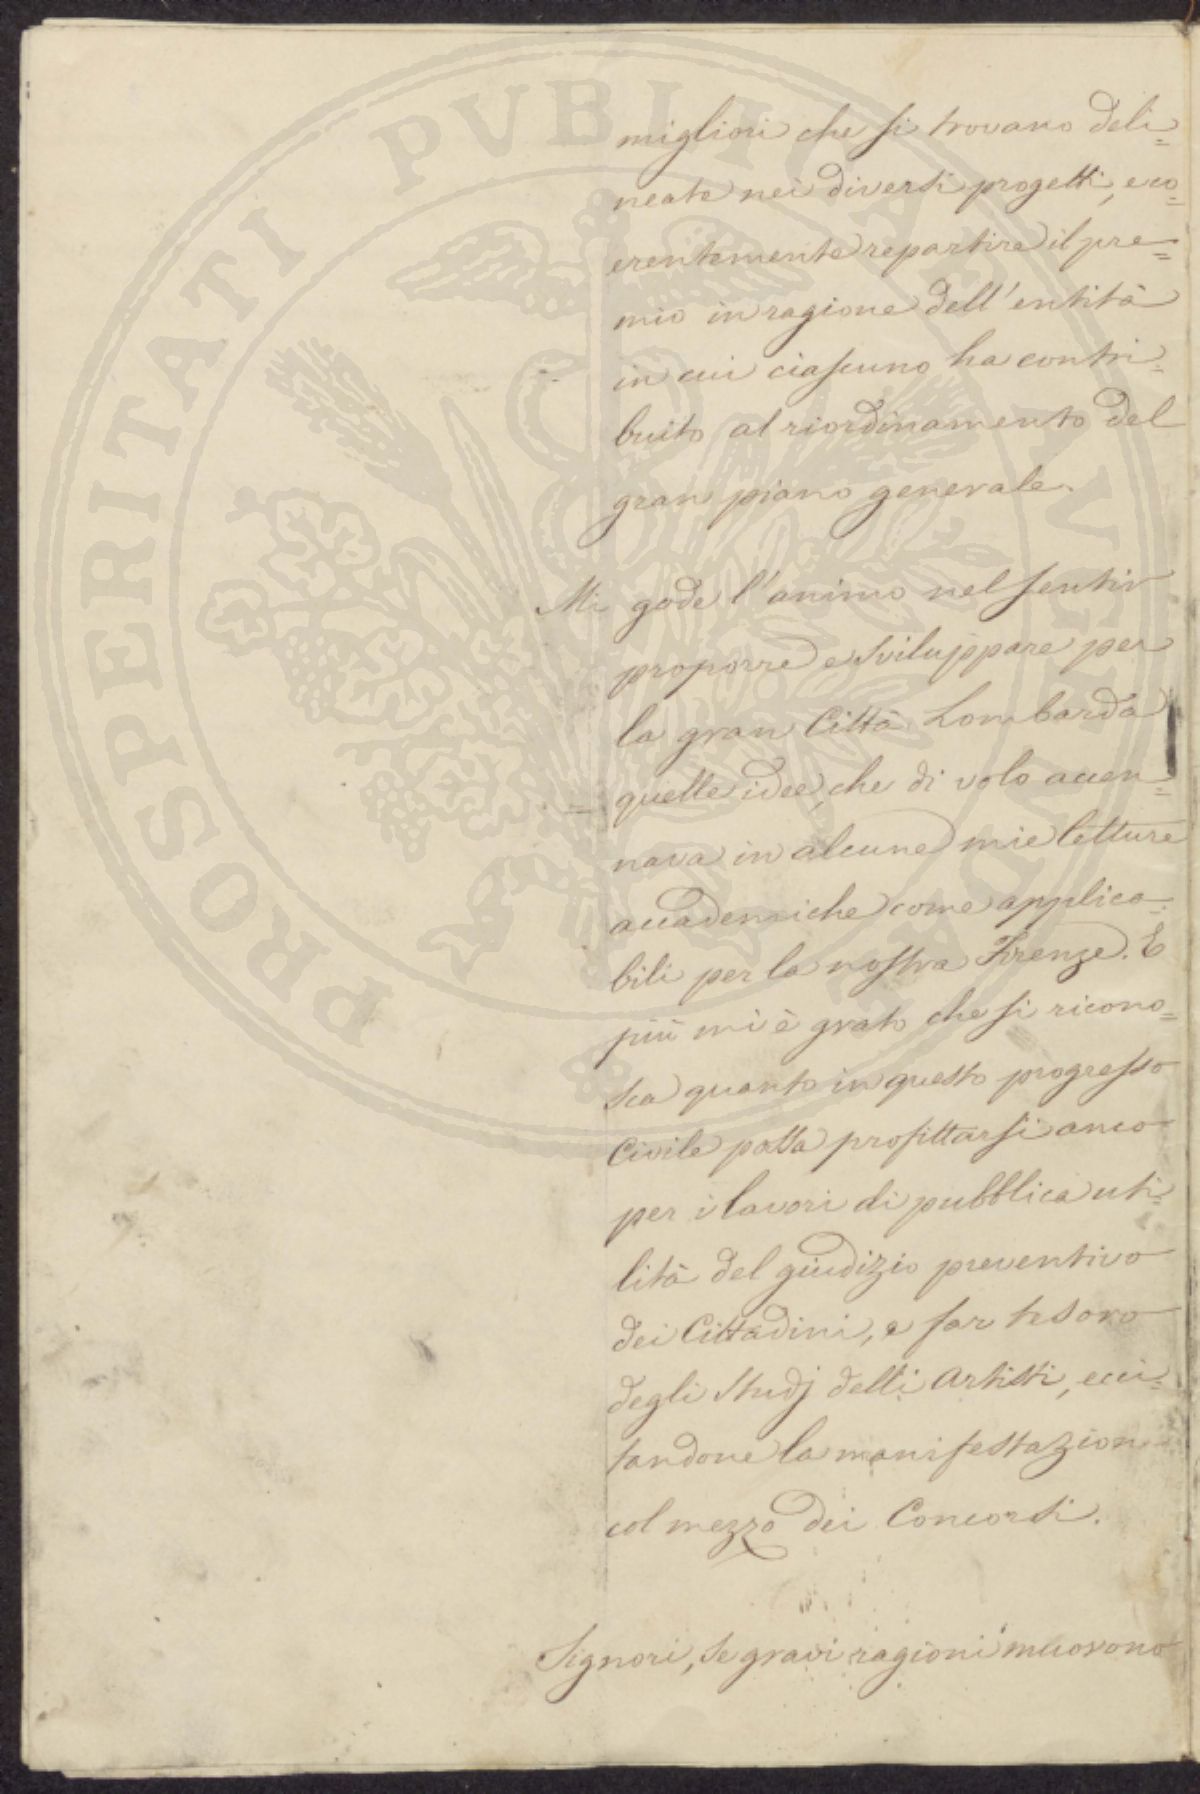 migliori che si trovano deli=
neate nei diversi progetti, e co=
erentemente repartire il pre=
mio in ragione dell'entità
in cui ciascuno ha contri=
buito al riordinamento del
gran piano generale.
Mi gode l'animo nel sentir
proporre e sviluppare per
la gran Città Lombarda
quelle idee, che di volo accen=
nava in alcune mie letture
accademiche come applica=
bili per la nostra Firenze. E
più mi è grato che si ricono=
sca quanto in questo progresso
Civile possa profittarsi anco
per i lavori di pubblica uti=
lità del giudizio preventivo
dei Cittadini, e far tesoro
degli Studj delli Artisti, ecci=
tandone la manifestazione
col mezzo dei Concorsi.
Signori, se gravi ragioni muovono
PROSPERITATI PVBLICAE AVGENDAE